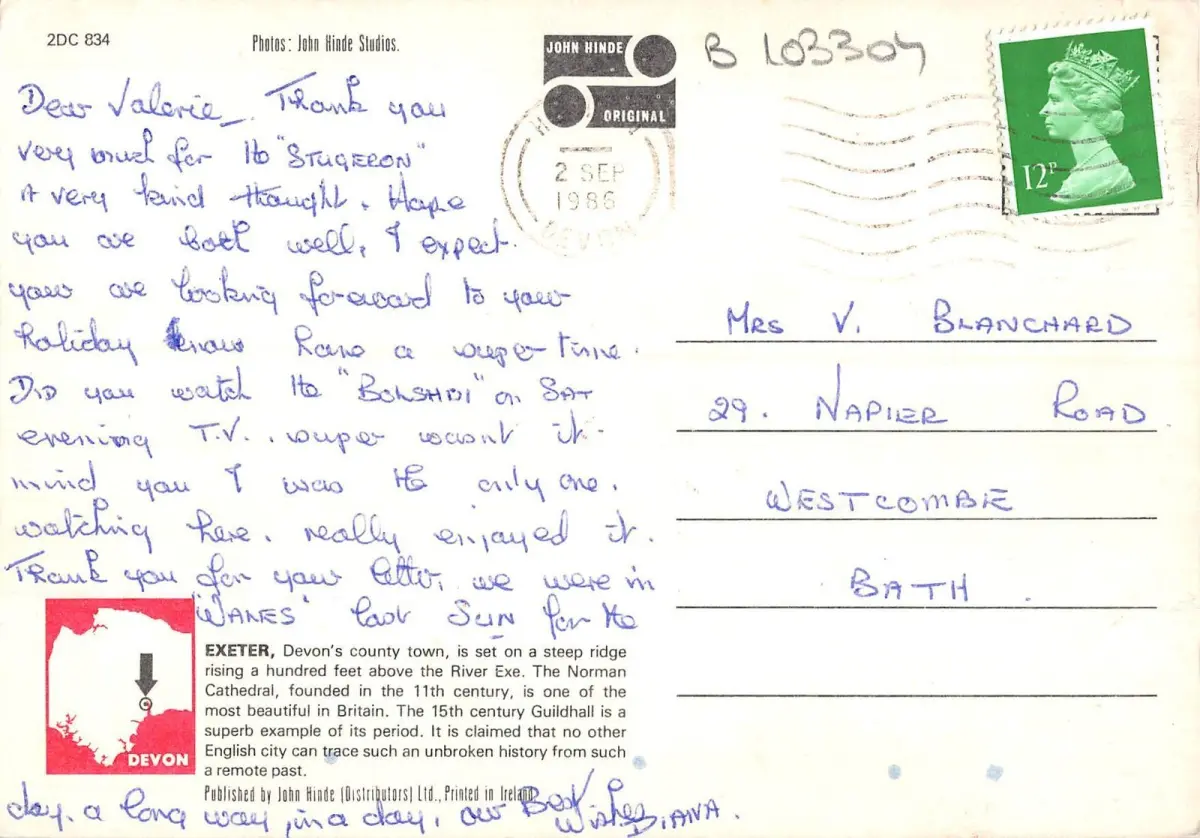 2DC 834
Photos: John Hinde Studios.
JOHN HINDE
ORIGINAL
B 103304
2 SEP
1986
DEVON
12P
Dear Valerie. Thank you
very much for the "STUGERON"
A very kind thought. Hope
you are both well, I expect
your are looking forward to your
holiday know have a super time.
DID you watch the "BOLSHOI" on SAT
evening T.V. super wasnt it.
mind you I was the only one.
watching here. really enjoyed it.
Thank you for your letter, we were in
last SUN for the
day, a long way, in a day, our Best
Wishes DIANA.
MRS V. BLANCHARD
29. NAPIER ROAD
WESTCOMBE
BATH.
EXETER, Devon's county town, is set on a steep ridge
rising a hundred feet above the River Exe. The Norman
Cathedral, founded in the 11th century, is one of the
most beautiful in Britain. The 15th century Guildhall is a
superb example of its period. It is claimed that no other
English city can trace such an unbroken history from such
a remote past.
Published by John Hinde (Distributors) Ltd., Printed in Ireland.
DEVON